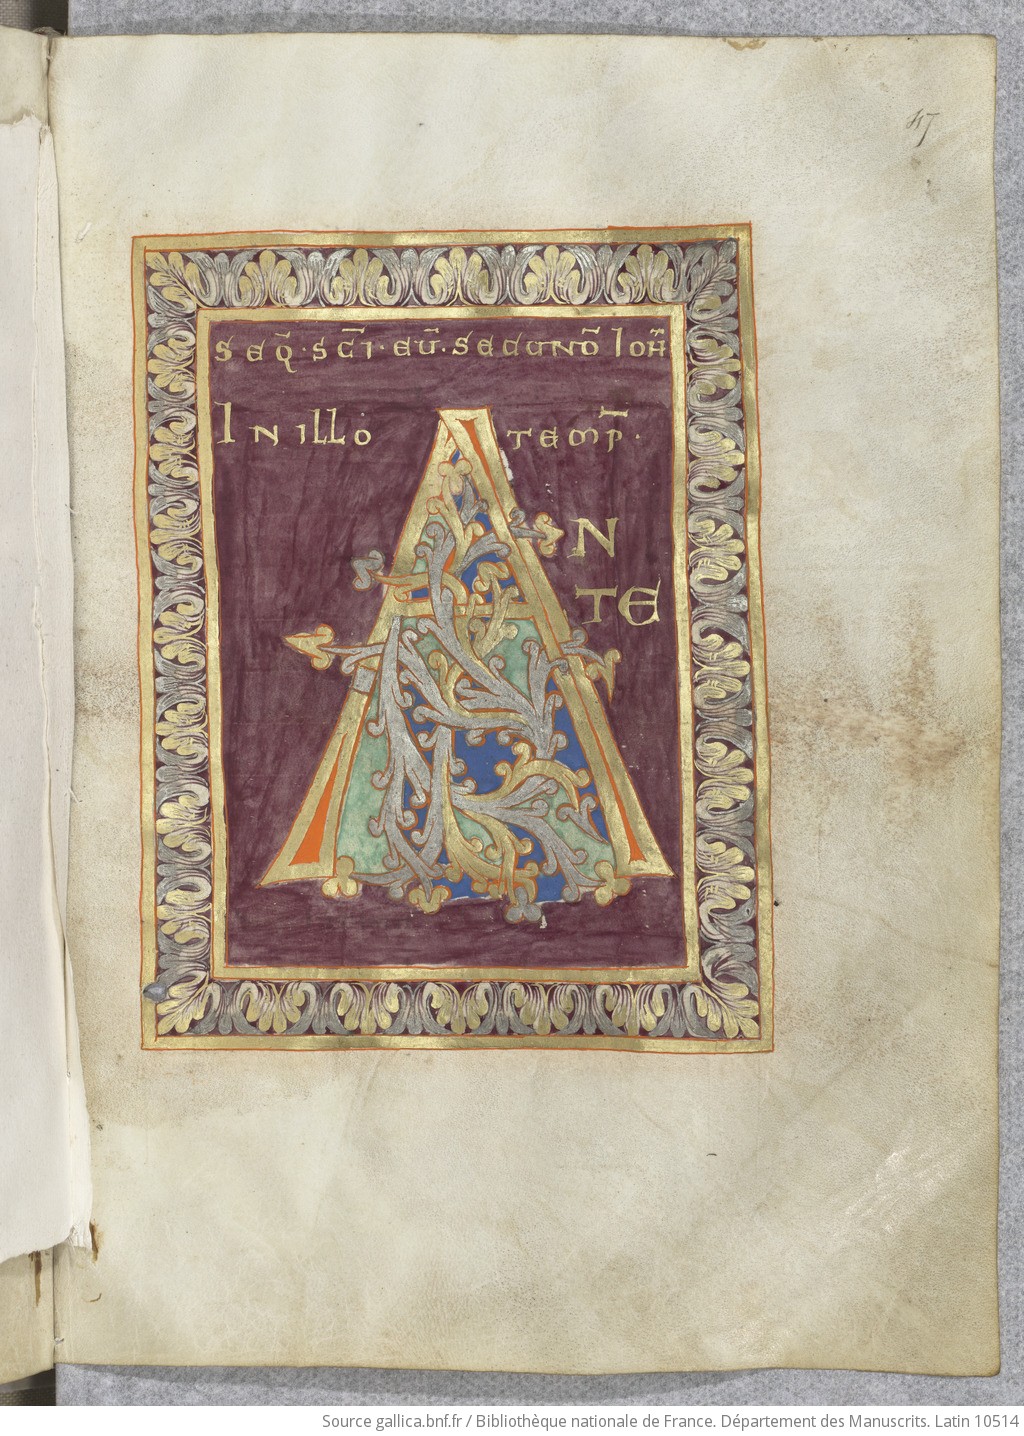 47
SEQ̄·SC̄I·EŪ·SECUNDŌ IOH̄
IN ILLO TEMP̄·
A
N
TE
Source gallica.bnf.fr / Bibliothèque nationale de France. Département des Manuscrits. Latin 10514